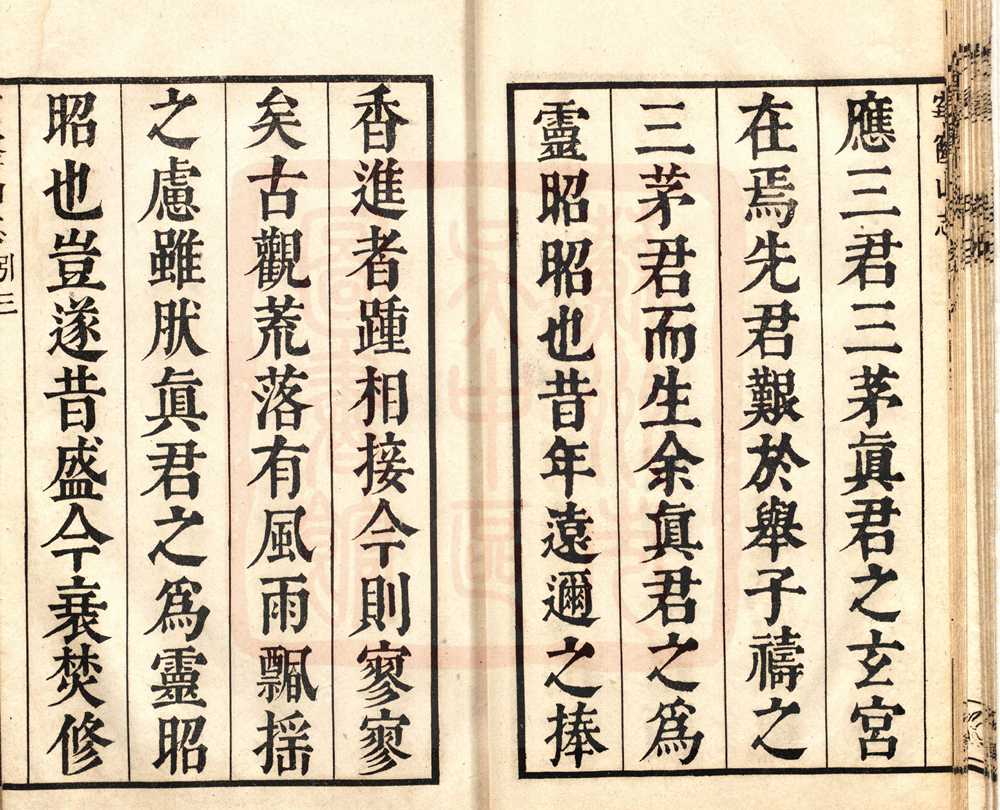 應三君三茅眞君之玄宮
在焉先君艱於舉子禱之
三茅君而生余眞君之爲
靈昭昭也昔年遠邇之捧
香進者踵相接今則寥寥
矣古觀荒落有風雨飄揺
之慮雖肰眞君之爲靈昭
昭也豈遂昔盛今衰焚修